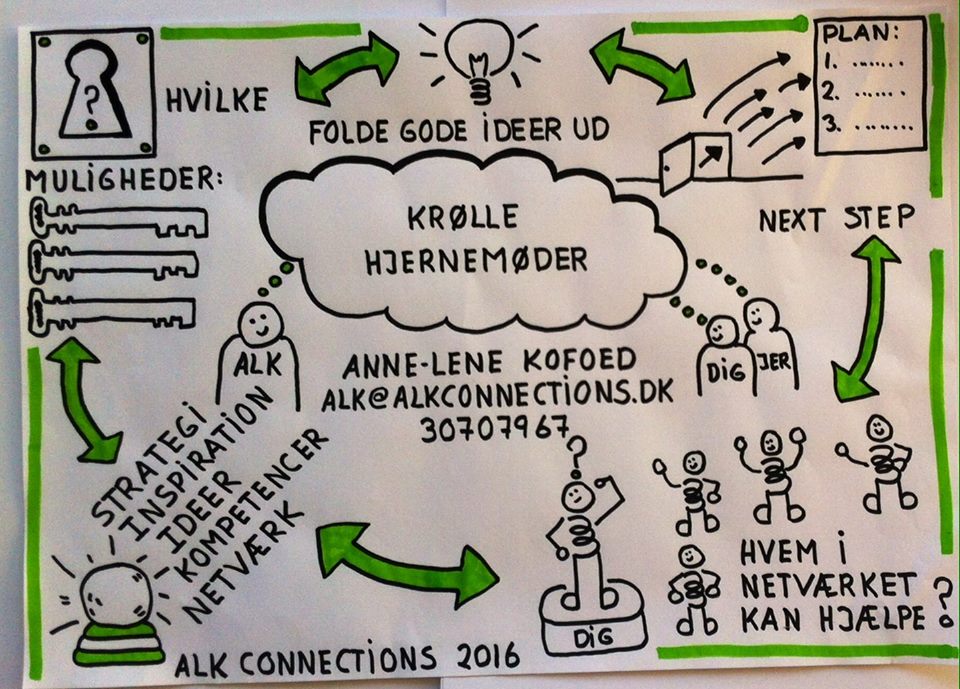 ?
HVILKE
MULIGHEDER:
FOLDE GODE IDEER UD
PLAN:
1. .......
2. ......
3. ........
NEXT STEP
KRØLLE
HJERNEMØDER
ALK
DIG
JER
ANNE-LENE KOFOED
ALK@ALKCONNECTIONS.DK
30707967
STRATEGI
INSPIRATION
IDEER
KOMPETENCER
NETVÆRK
?
DIG
HVEM I
NETVÆRKET
KAN HJÆLPE?
ALK CONNECTIONS 2016